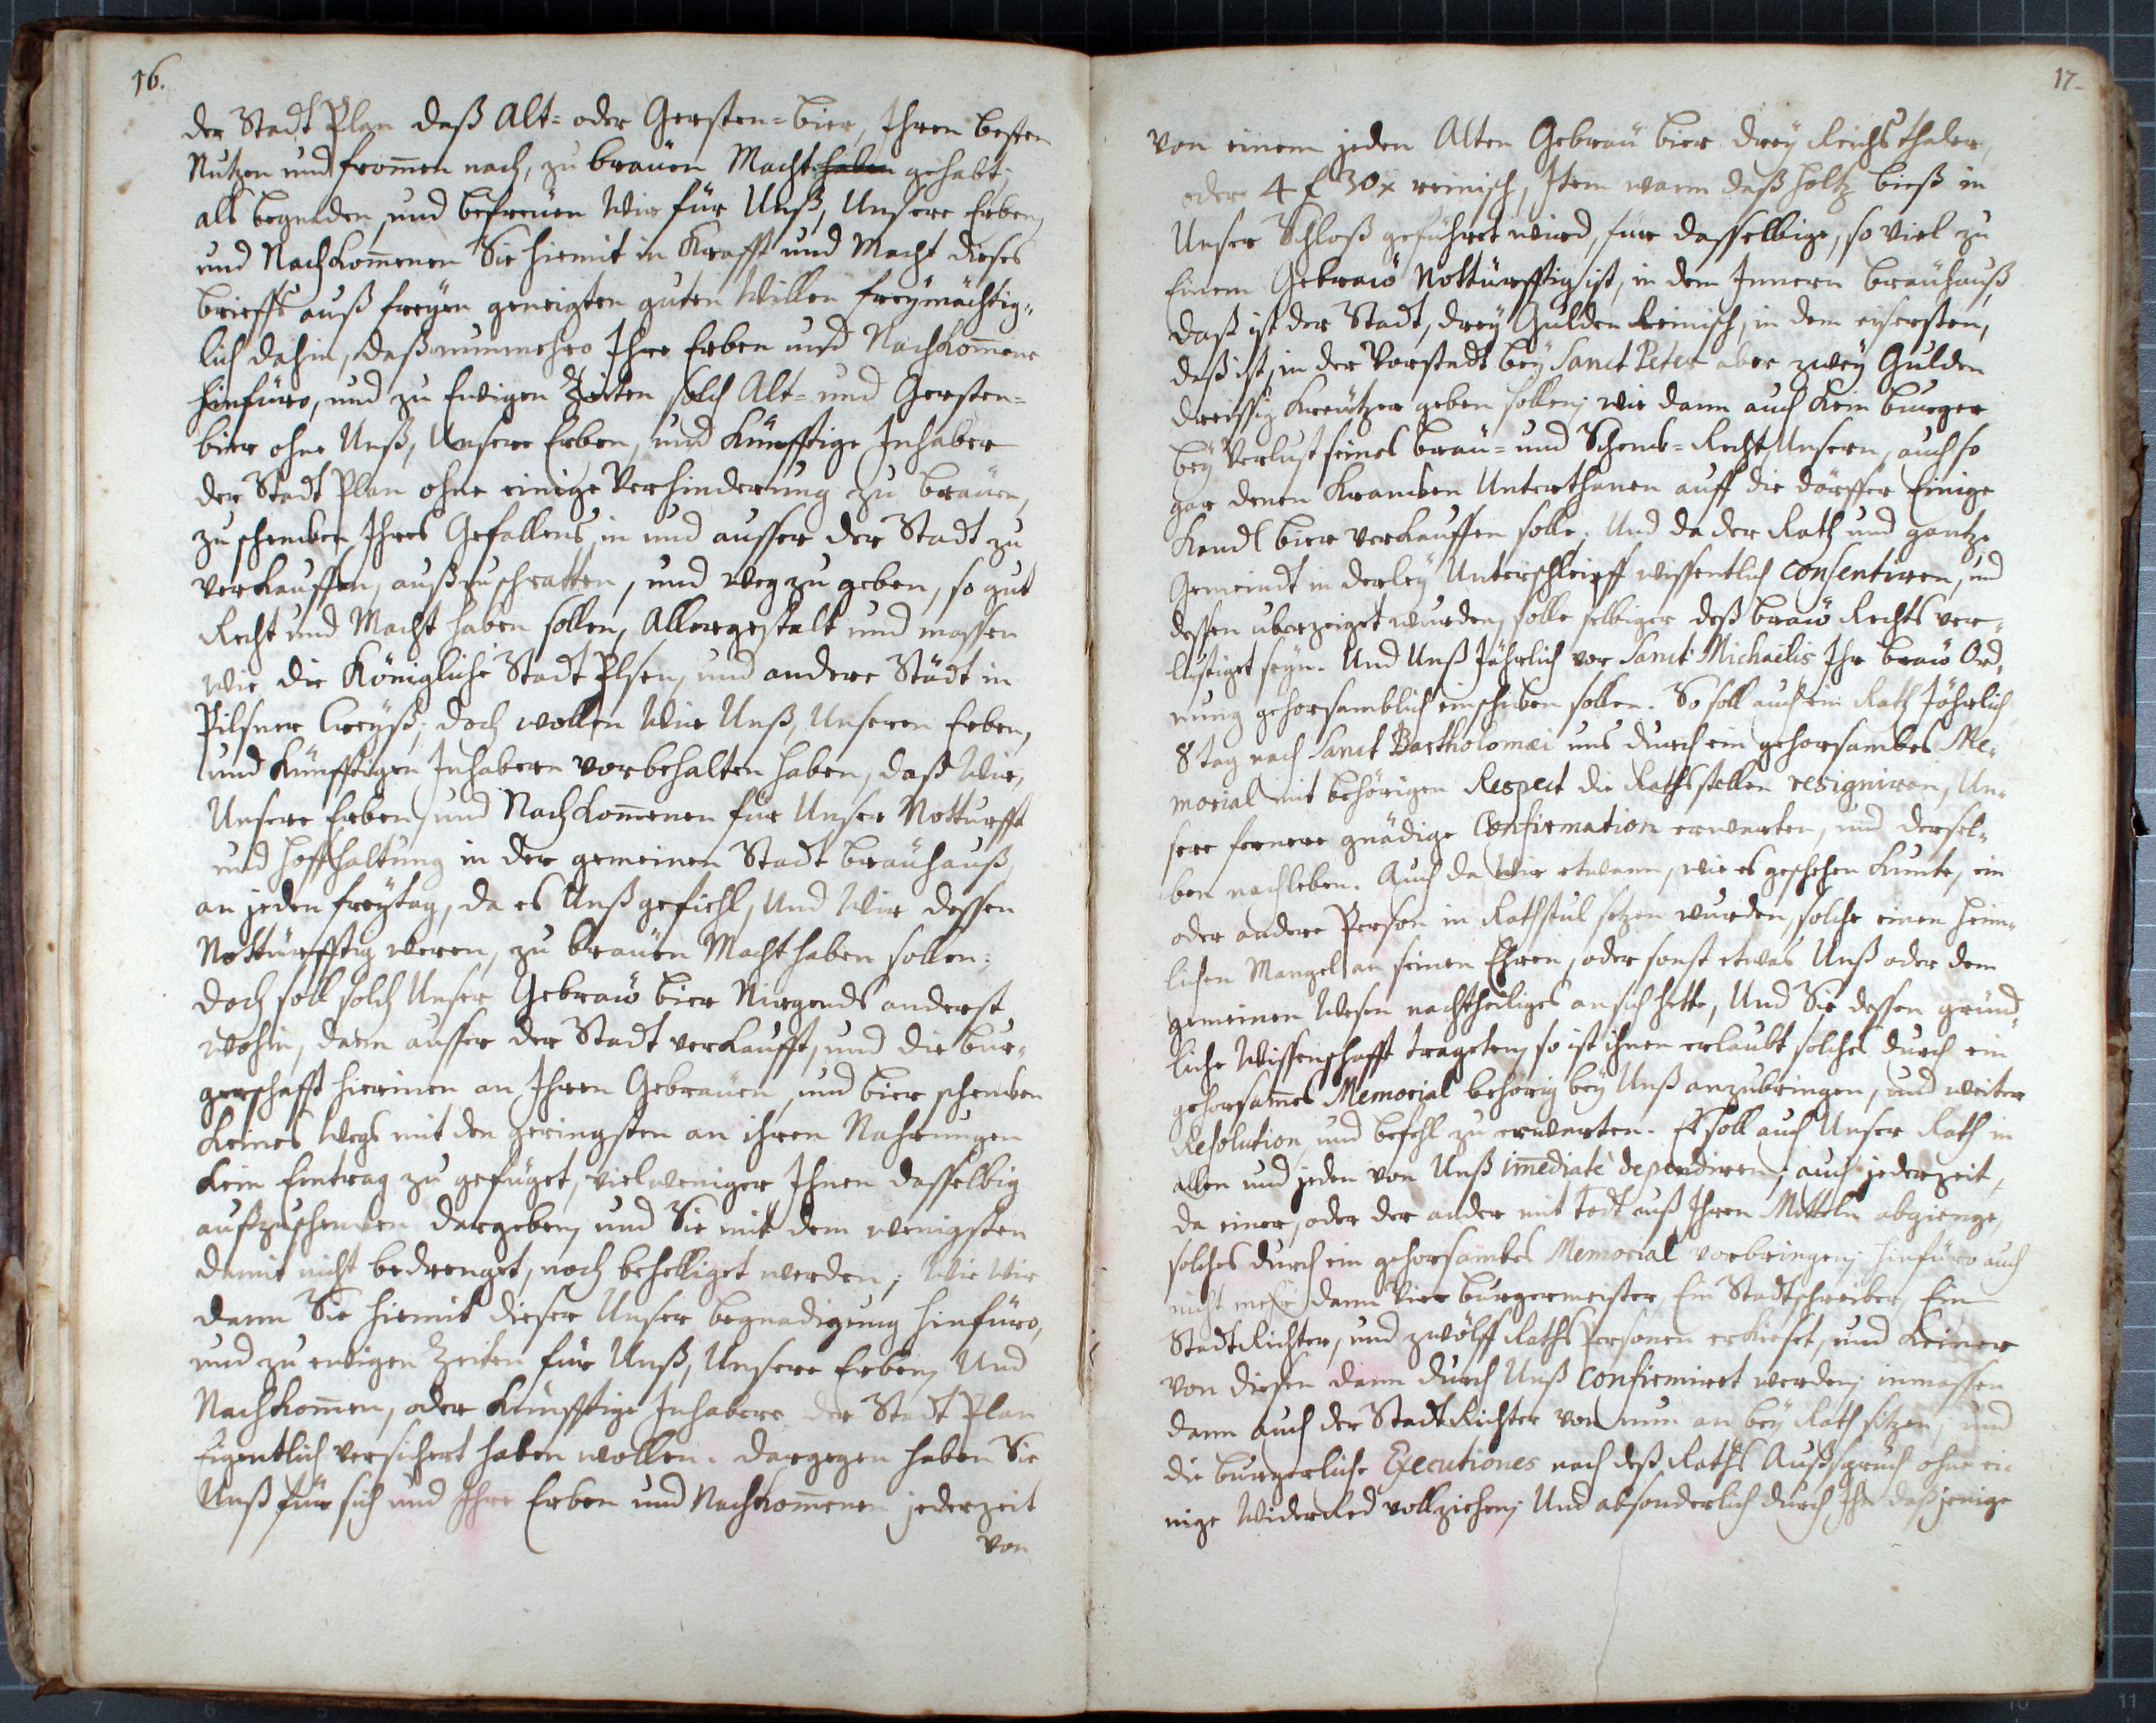 16.
der Stadt Plan daß Alt= oder Gersten=bier, Ihren besten
Nutzen und frommen nach, zu brauen Macht haben gehabt;
alß begnaden, und befreuen Wir für Unß, Unsere Erben,
und Nachkommenen Sie hiemit in Krafft und Macht dieses
brieffs auß freyen geneigten guten Willen freymächtig=
lich dahin, daß nunmehro Ihre Erben und Nachkommene
hinfüro, und zu Ewigen Zeiten solch Alt= und Gersten=
bier ohne Unß, Unsere Erben, und Künfftige Inhaber
der Stadt Plan ohne einige Verhinderung zu brauen,
zu schencken Ihres Gefallens, in und ausser der Stadt zu
verkauffen, außzuschratten, und weg zu geben, so gut
Recht und Macht haben sollen, Allergestalt und massen
wie die Königliche Stadt Plsen, und andere Städt in
Pilsner Creyß; doch wollen Wir Unß, Unseren Erben,
und Künfftigen Inhabern vorbehalten haben, daß Wir,
Unsere Erben, und Nachkommenen für Unser Notturfft
und Hoffhaltung in der gemeinen Stadt bräuhauß,
an jeden freytag, da es Unß gefiehl, Und Wir dessen
Nottürfftig weren, zu brauen Macht haben sollen;
doch soll solch Unser Gebraw bier Nirgends anderst
wohin, dann ausser der Stadt verkaufft, und die bur=
gerschafft hierinen an Ihren Gebrauen, und bier schencken
Keines wegs mit den geringsten an ihren Nahrungen
Kein Eintrag zu gefüget, vielweniger Ihnen dasselbig
außzuschencken dargeben, und Sie mit dem wenigsten
damit nicht bedrenget, noch behelliget werden; Wie Wir
dann Sie hiemit dieser Unser begnadigung hinfüro,
und zu ewigen Zeiten für Unß, Unsere Erben, Und
Nachkommen, oder Künfftige Inhabere der Stadt Plan
Eigentlich versichert haben wollen. dargegen haben Sie
Unß für sich und Ihre Erben und Nachkommenen jederzeit
von
17.
von einem jeden Alten Gebräu bier drey Reichsthaler,
oder 4 f 30 x reinisch, Item wann daß holtz bieß in
Unser Schloß geführet wird, für dasselbige, so viel zu
Einem Gebraw Nottürfftig ist, in dem Innern bräuhauß,
daß ist der Stadt, drey Gulden Reinisch, in dem eusersten,
daß ist, in der Vorstadt bey Sanct Peter aber zwey Gulden
dreissig Kreutzer geben sollen; wie dann auch Kein burger
bey Verlust seines bräu= und Schenck=Recht Unsern, auch so
gar denen Krancken Unterthanen auff die dörffer Einige
Kandl bier verkauffen solle; Und da der Rath und gantze
Gemeindt in derley Unterschleipff wissentlich consentiren, und
dessen uberzeiget wurden, solle selbiger deß braw Rechts ver=
lustiget seyn. Und Unß Jährlich vor Sanct Michaëlis Ihr braw Ord=
nung gehorsamblich einschicken sollen. So soll auch ein Rath Jährlich
8 tag nach Sanct Bartholomæi uns durch ein gehorsambes Me=
morial mit behörigen Respect die Rathsstellen resigniren, Un=
sere fernere gnädige Confirmation erwarten, und dersel=
ben nachleben. Auch da Wir etwann, wie es geschehen kunte, ein
oder andere Person in Rathstul setzen wurden, solche einen heim=
lichen Mangel an seinen Ehren, oder sonst etwas Unß oder dem
gemeinen Wesen nachtheiliges an sich hette, Und Sie dessen gründ=
liche Wissenschafft trageten, so ist ihnen erlaubt solches durch ein
gehorsames Memorial behörig bey Unß anzubringen, und weiter
Resolution, und befehl zu erwarten. Es soll auch Unser Rath in
allen und jeden von Unß immediatè dependiren; auch jederzeit,
da einer, oder der ander mit todt auß Ihren Mitteln abgienge,
solches durch ein gehorsambes Memorial vorbringen; hinfüro auch
nicht mehr dann Vier burgermeister, Ein Stadtschreiber, Ein
StadtRichter, und zwölff Raths Personen erkieset, und Keiner
von diesen dann durch Unß confirmiret werden; inmassen
dann auch der StadtRichter von nun an bey Rath sitzen, und
die burgerliche Executiones nach deß Raths Außspruch ohne ei=
nige WiderRed vollziehen; Und absonderlich durch Ihn daßjenige